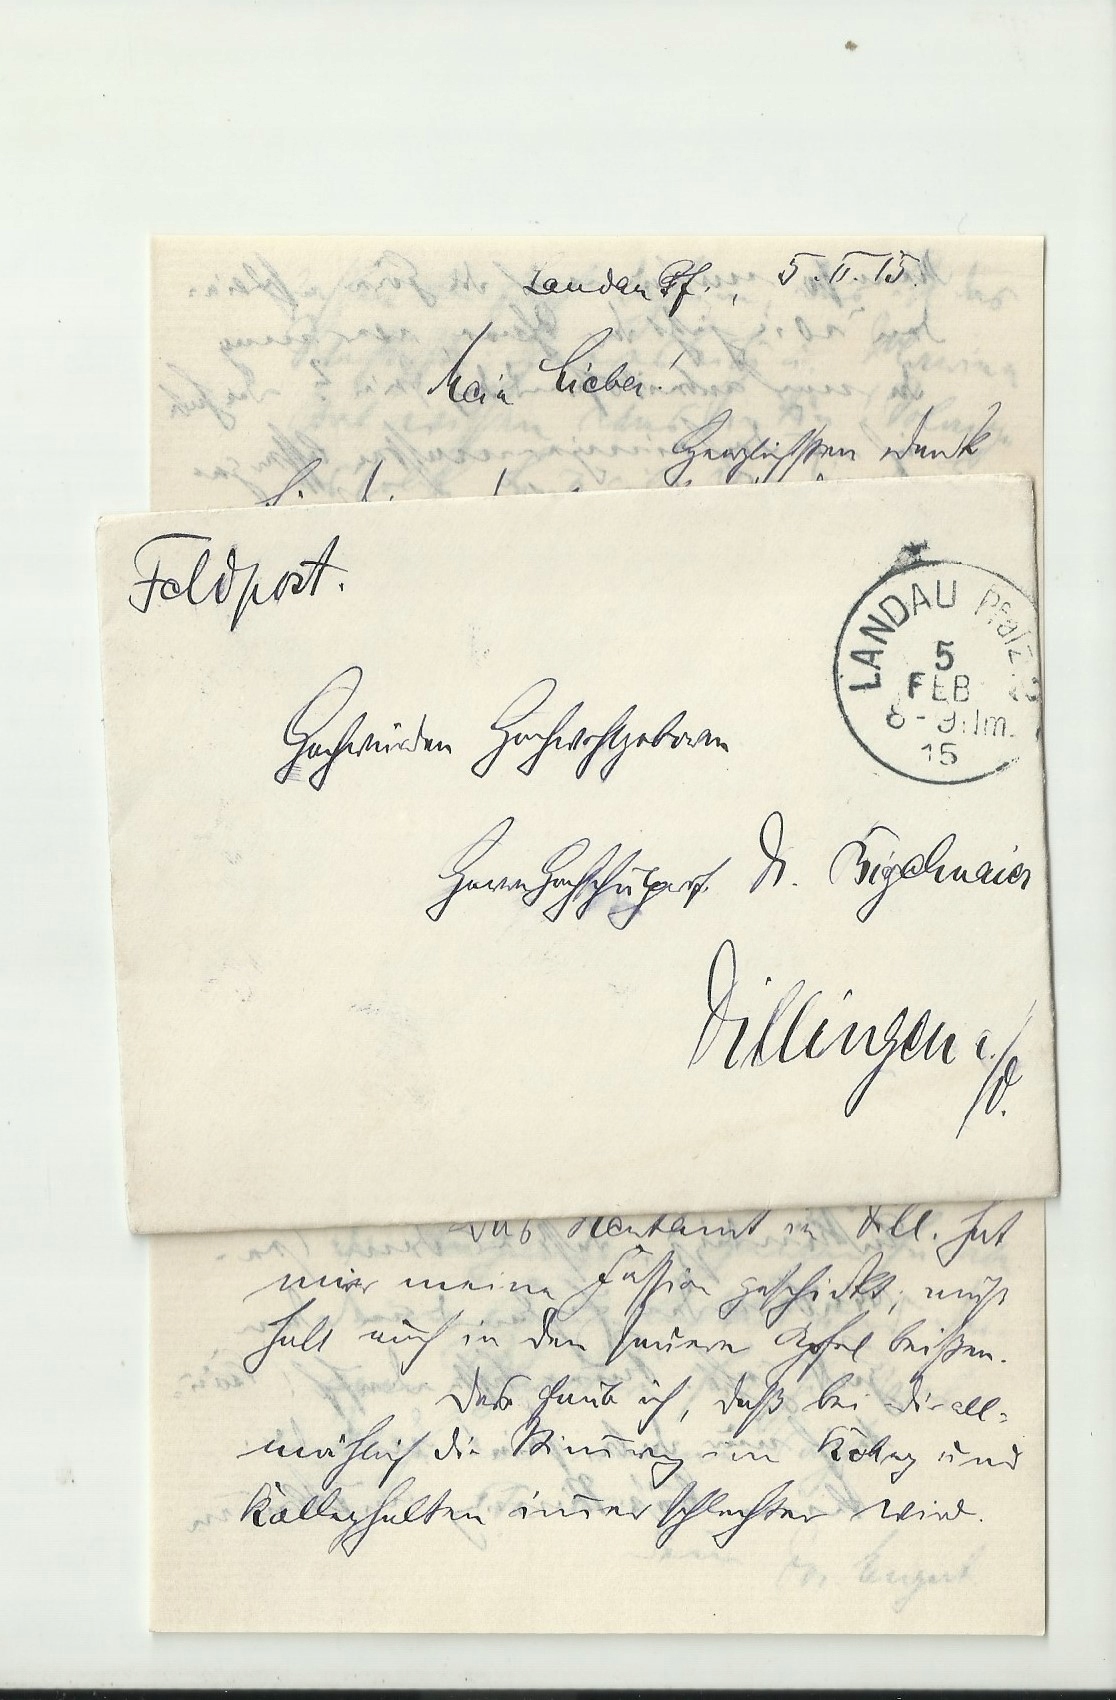 Landau Pf., 5.II.15.
Mein Lieber!
Herzlichsten Dank
Feldpost.
LANDAU Pfalz
5
FEB
8-9 Nm.
15
Hochwürden Hochwohlgeboren
Herrn Hochschulprof. Dr. Bigelmair
Dillingen a/D.
Das Rentamt in Dill. hat
mir meine Fassion geschickt; muß
halt auch in den sauern Apfel beißen.
Das glaub ich, daß bei Dir all-
mählich die Stimmung im Kolleg und
Kolleghalten immer schlechter wird.